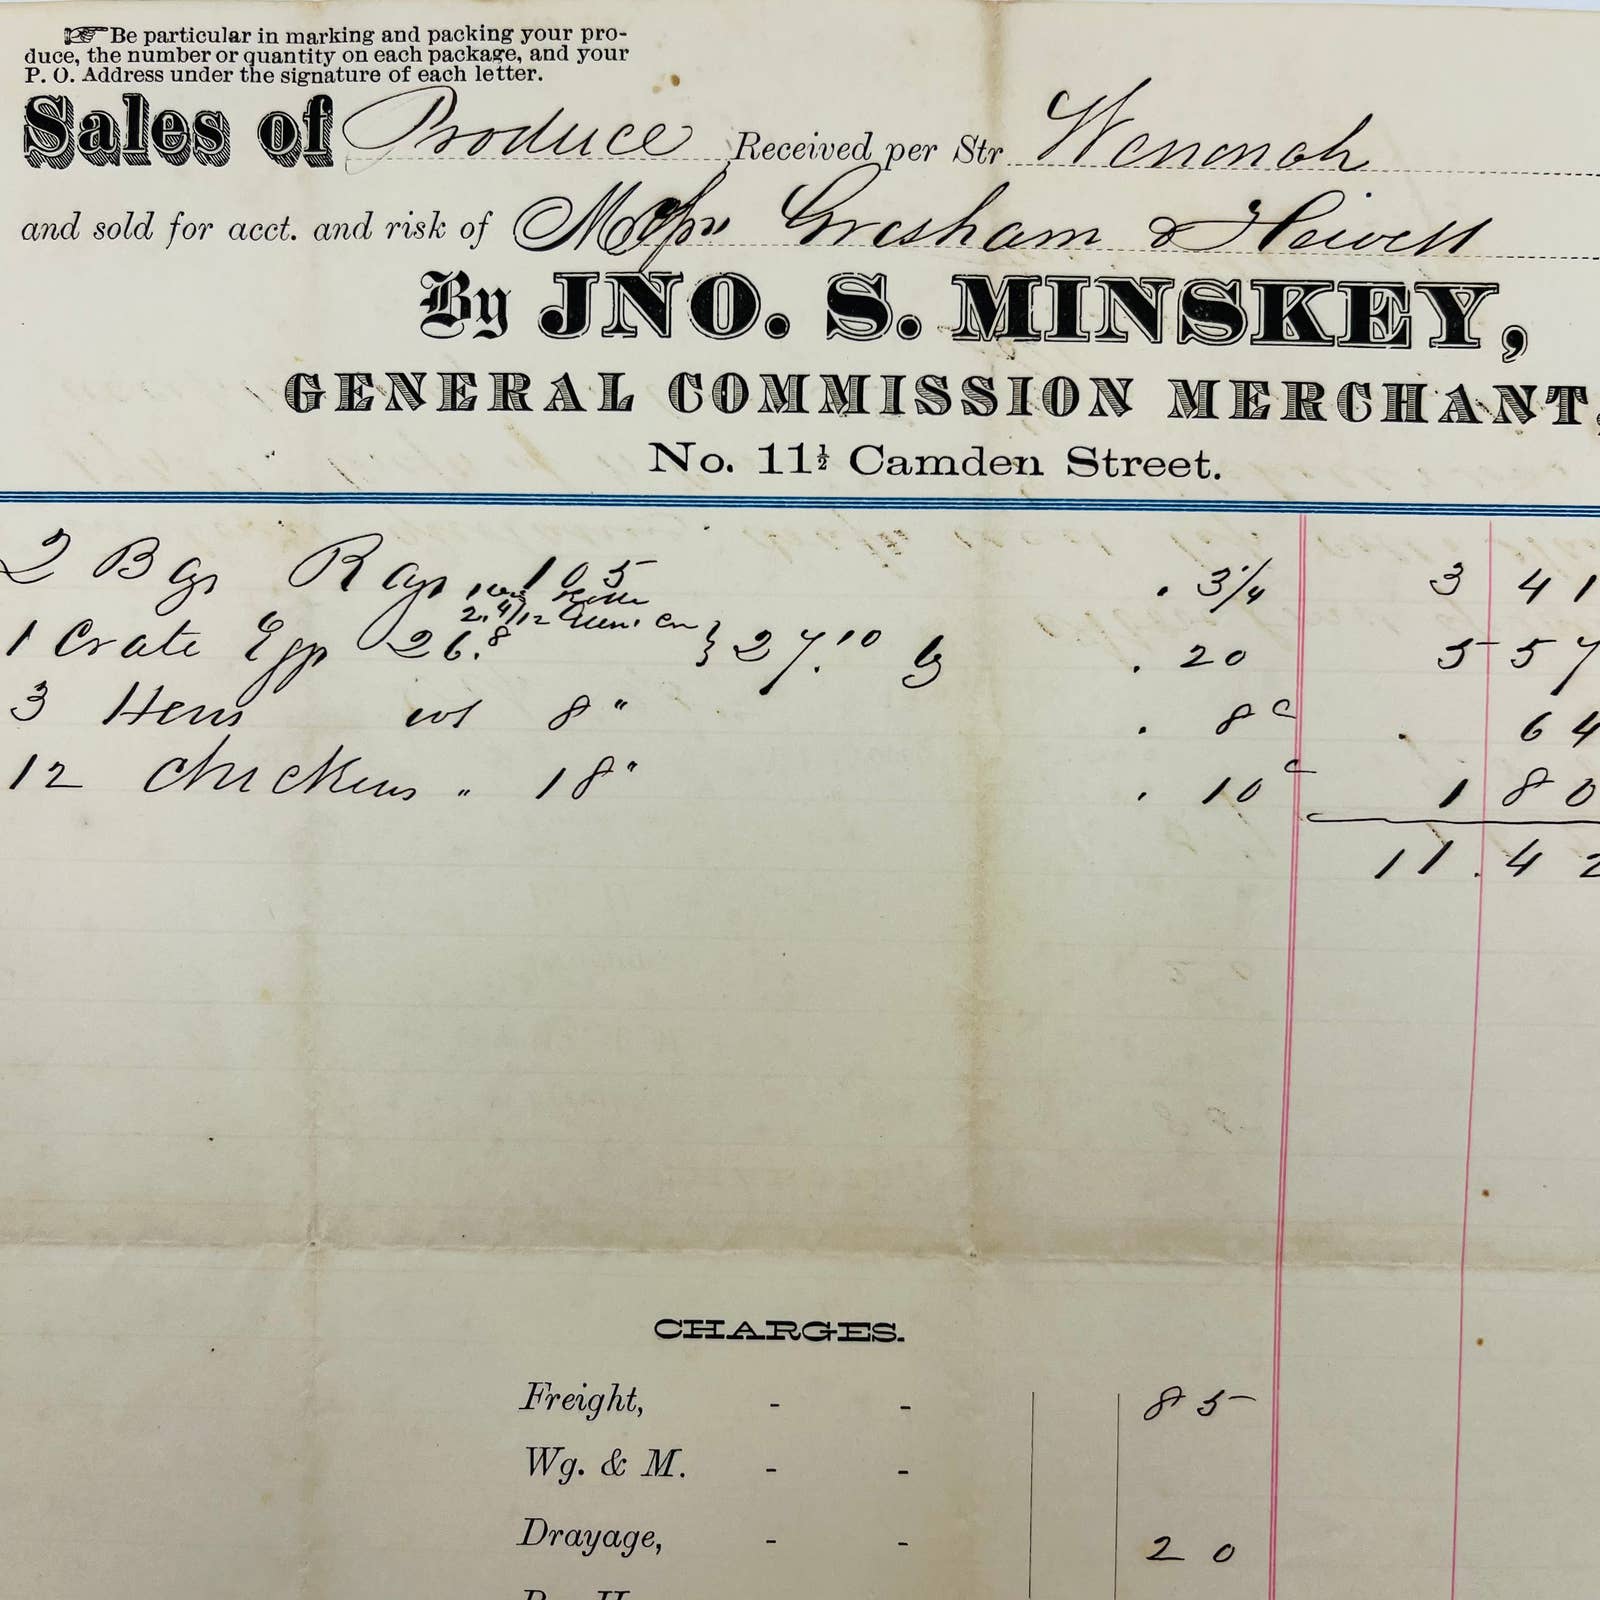 ☞ Be particular in marking and packing your pro-
duce, the number or quantity on each package, and your
P. O. Address under the signature of each letter.
Sales of Produce Received per Str Wenonah
and sold for acct. and risk of Messrs Gresham & Hewell
By JNO. S. MINSKEY,
GENERAL COMMISSION MERCHANT,
No. 11½ Camden Street.
2 Bgs Rags 105 . 3¼ 3 41
2. 4/12
1 Crate Eggs 26.8 } 27.10 . 20 5 57
3 Hens wt 8 " . 8c . 64
12 Chickens " 18 " . 10c 1 80
11.42
CHARGES.
Freight, - - 85
Wg. & M. - -
Drayage, - - 20